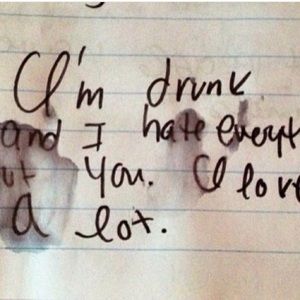 I'm drunk
and I hate everyt
ut you. I love
a lot.